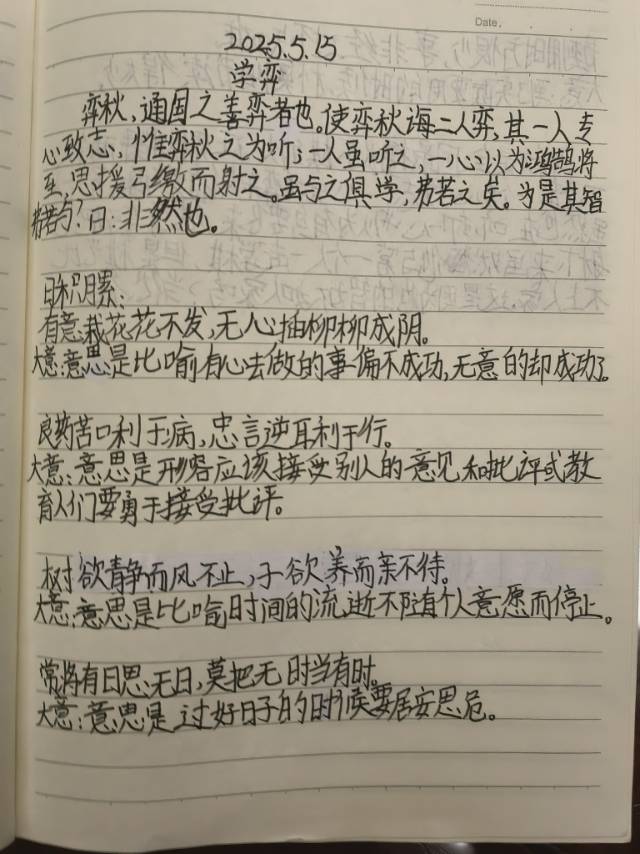 Date.
2025.5.15
学弈
弈秋，通国之善弈者也。使弈秋诲二人弈，其一人专
心致志，惟弈秋之为听；一人虽听之，一心以为鸿鹄将
至，思援弓缴而射之。虽与之俱学，弗若之矣。为是其智
弗若与？曰：非然也。
日积月累：
有意栽花花不发，无心插柳柳成阴。
大意：意思是比喻有心去做的事偏不成功，无意的却成功了。
良药苦口利于病，忠言逆耳利于行。
大意：意思是形容应该接受别人的意见和批评或教
育人们要勇于接受批评。
树欲静而风不止，子欲养而亲不待。
大意：意思是比喻时间的流逝不随个人意愿而停止。
常将有日思无日，莫把无时当有时。
大意：意思是过好日子的时候要居安思危。